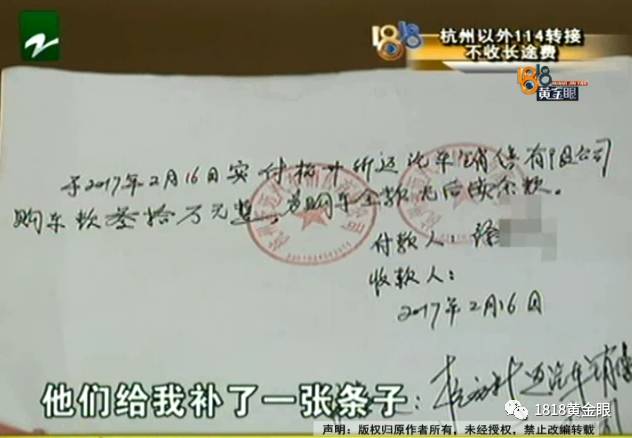 1818
杭州以外114转接
不收长途费
1818
黄金眼
于2017年2月16日实付杭州新迈汽车销售有限公司
购车款叁拾万元整,为购车全款无后续余款。
付款人:
收款人:
2017年2月16日
汽车销售
他们给我补了一张条子:
1818黄金眼
声明:版权归原作者所有,未经授权,禁止改编转载